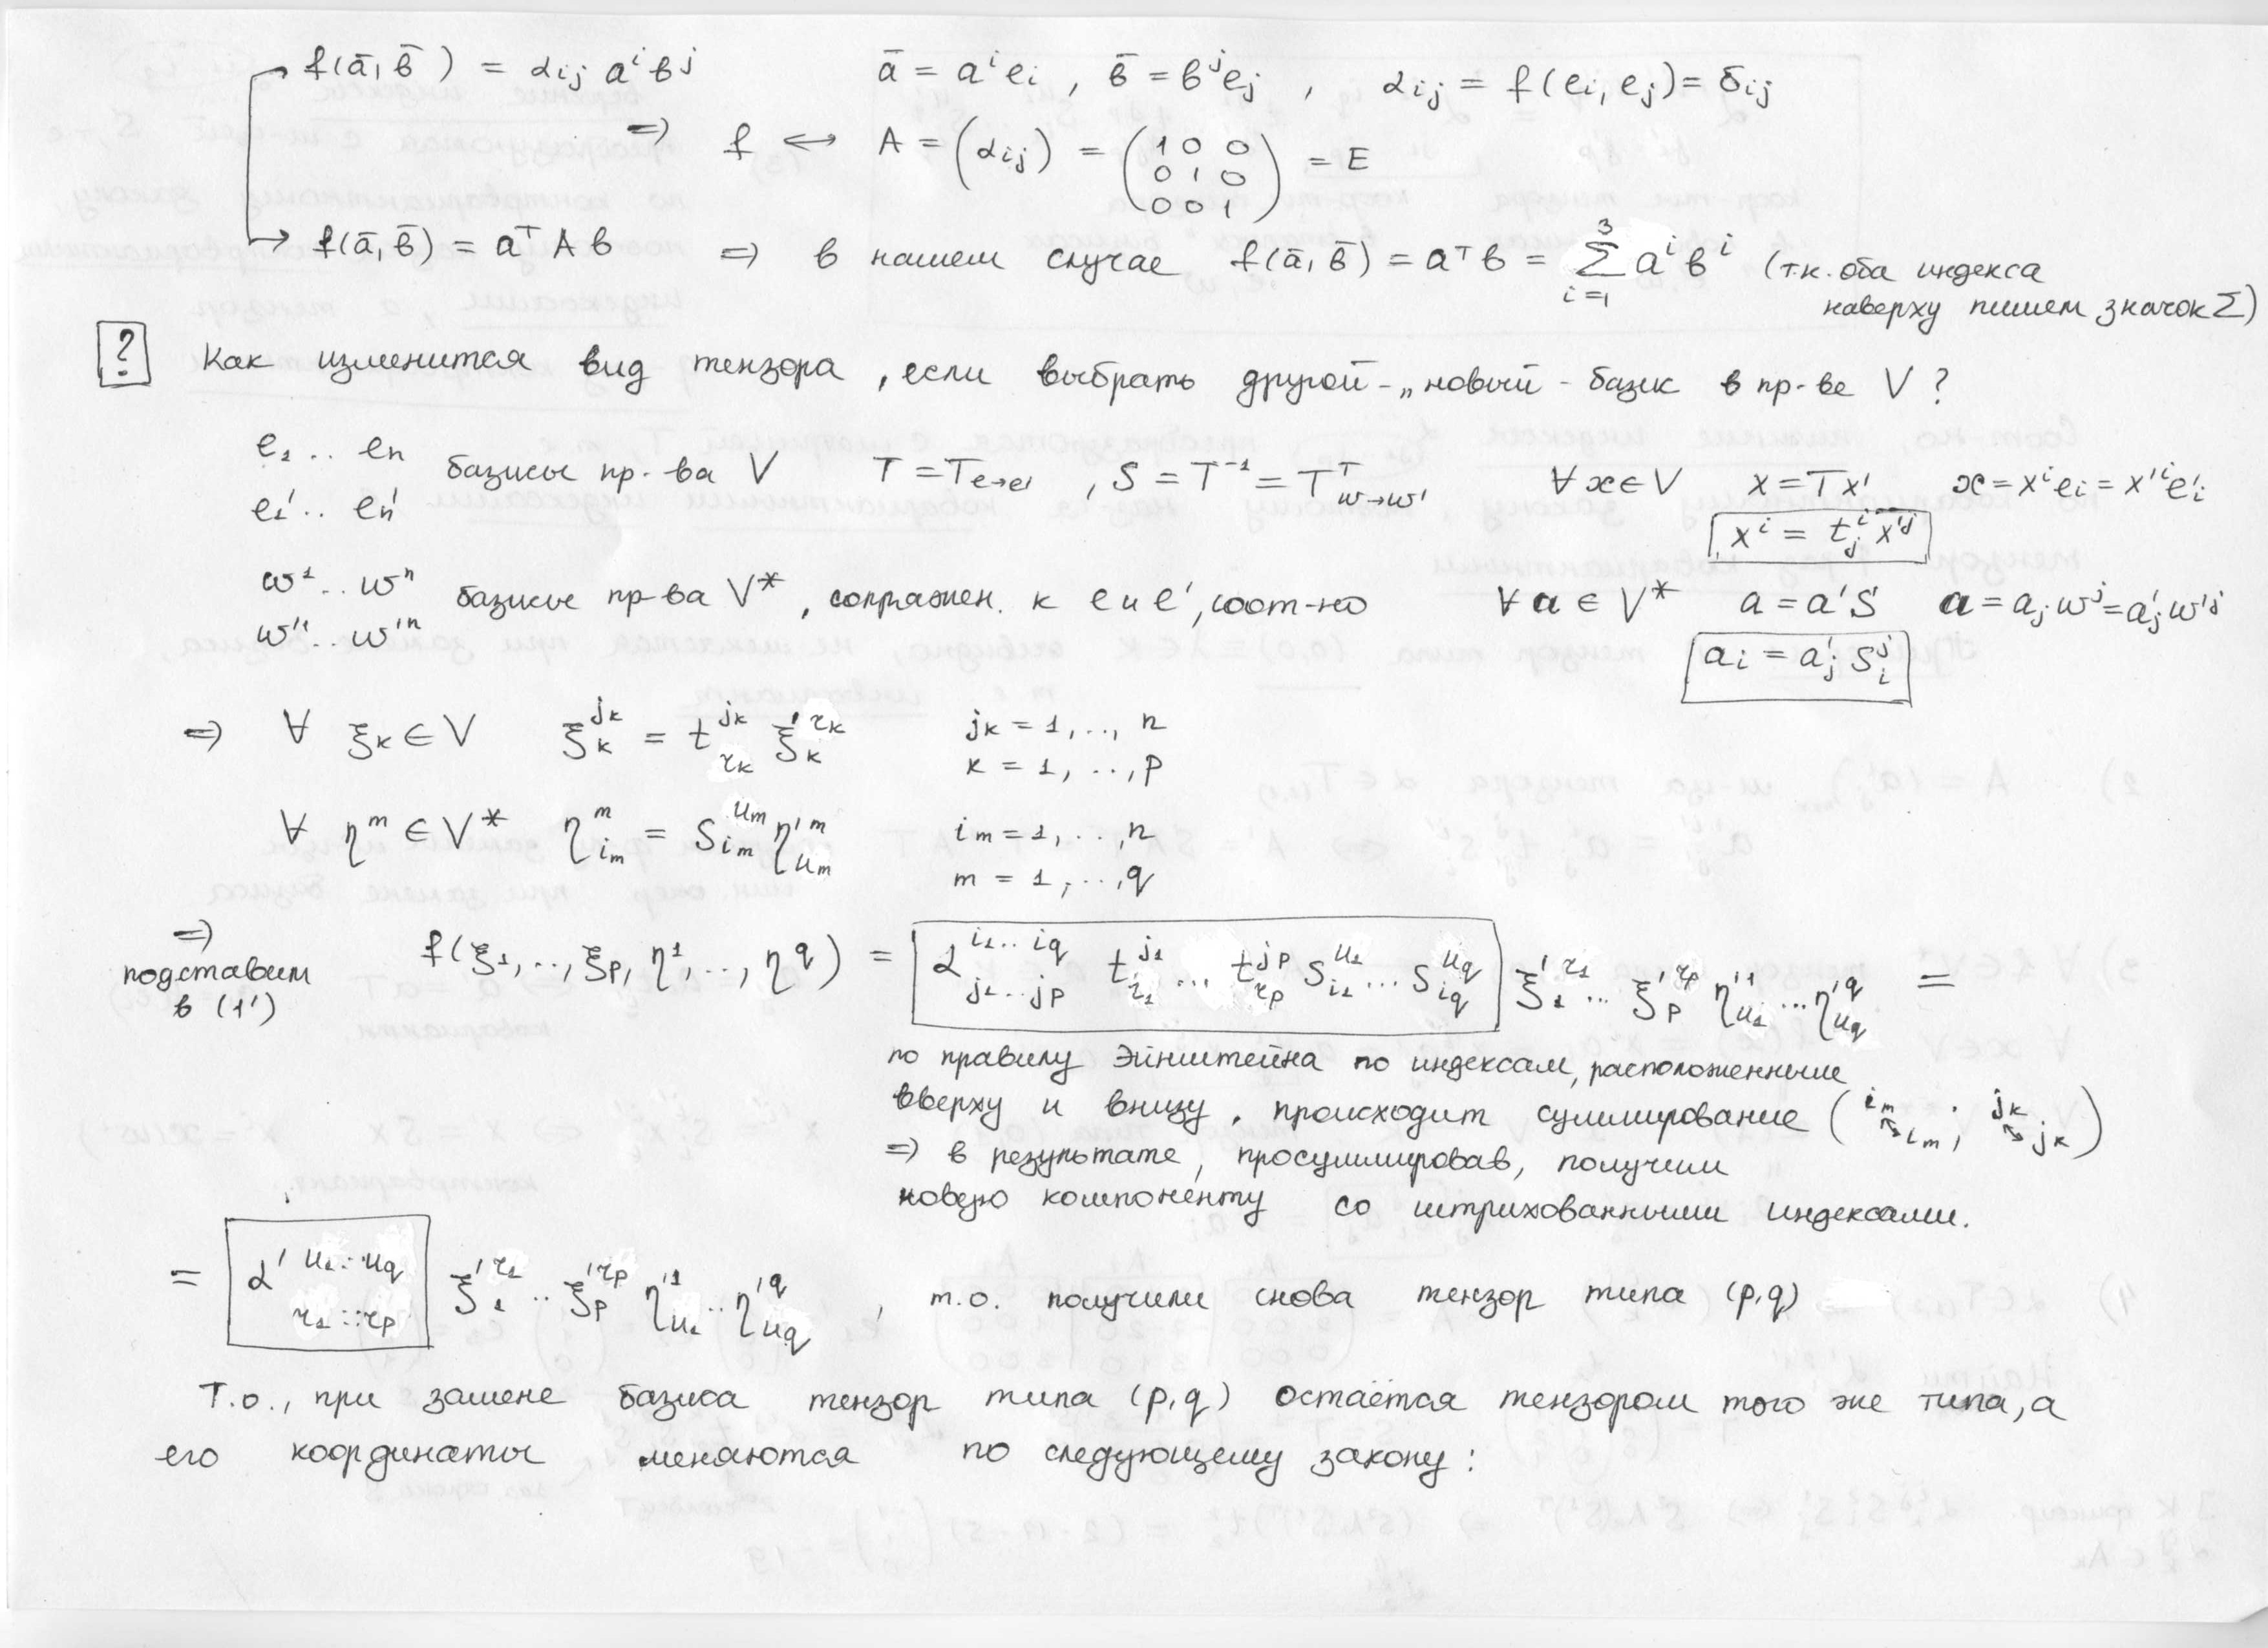 f(ā, b̄) = α_{ij} a^i b^j    ā = a^i e_i , b̄ = b^j e_j , α_{ij} = f(e_i, e_j) = δ_{ij}
⇒ f ↔ A = (α_{ij}) = (1 0 0
0 1 0
0 0 1) = E
f(ā, b̄) = a^T A b ⇒ в нашем случае f(ā, b̄) = a^T b = Σ_{i=1}^{3} a^i b^i (т.к. оба индекса
наверху пишем значок Σ)
? Как изменится вид тензора, если выбрать другой - „новый - базис в пр-ве V ?
e_1 .. e_n
e'_1 .. e'_n базисы пр-ва V    T = T_{e→e'} , S = T^{-1} = T^T_{w→w'}    ∀ x ∈ V  x = T x'  x = x^i e_i = x'^i e'_i
x^i = t^i_j x'^j
w^1 .. w^n
w'^1 .. w'^n базисы пр-ва V* , сопряжен. к e и e', соот-но    ∀ a ∈ V*  a = a'S  a = a_j w^j = a'_j w'^j
a_i = a'_j s^j_i
⇒ ∀ ξ_k ∈ V  ξ_k^{j_k} = t^{j_k}_{r_k} ξ'^{r_k}_k    j_k = 1, .., n
k = 1, .., p
∀ η^m ∈ V*  η^m_{i_m} = s^{u_m}_{i_m} η'^m_{u_m}    i_m = 1, .., n
m = 1, .., q
⇒
подставим
в (1')
f(ξ_1, .., ξ_p, η^1, .., η^q) = α^{i_1..i_q}_{j_1..j_p} t^{j_1}_{r_1} ... t^{j_p}_{r_p} s^{u_1}_{i_1} ... s^{u_q}_{i_q} ξ'^{r_1}_1 ... ξ'^{r_p}_p η'^1_{u_1} ... η'^q_{u_q} =
по правилу Эйнштейна по индексам, расположенными
вверху и внизу, происходит суммирование (i_m ↔ i_m ; j_k ↔ j_k)
⇒ в результате, просуммировав, получим
новую компоненту со штрихованными индексами.
= α'^{u_1..u_q}_{r_1..r_p} ξ'^{r_1}_1 .. ξ'^{r_p}_p η'^1_{u_1} .. η'^q_{u_q} , т.о. получили снова тензор типа (p,q)
Т.о., при замене базиса тензор типа (p,q) остаётся тензором того же типа, а
его координаты меняются по следующему закону :